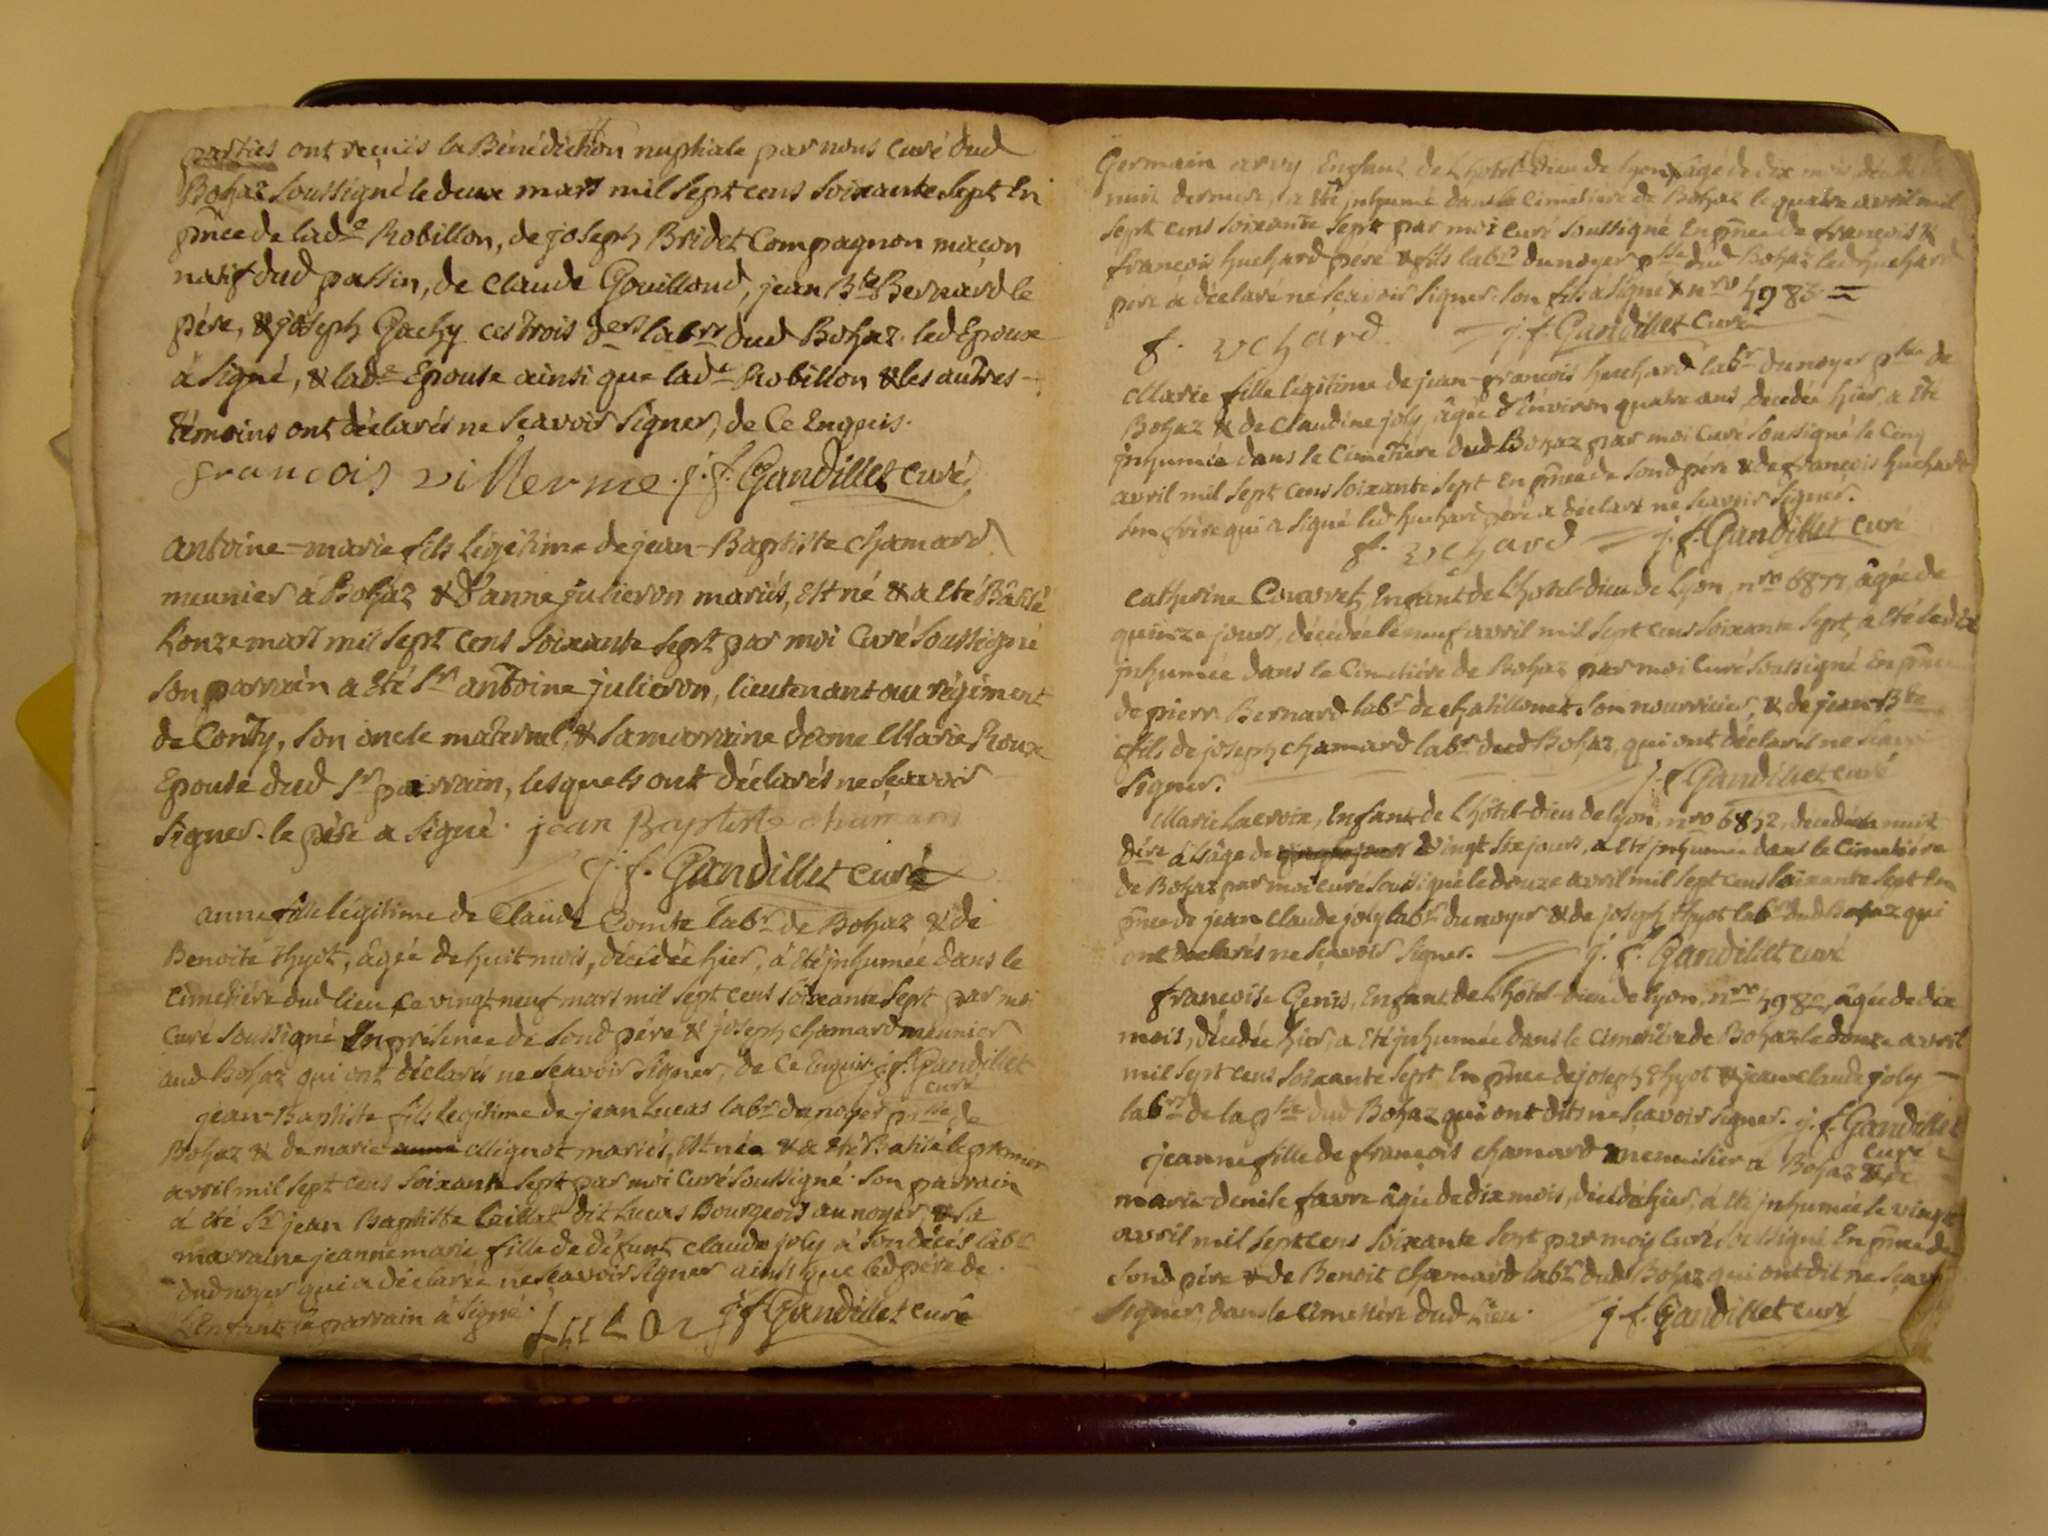 parties ont recuës la Bénédiction nuptiale par nous curé dud
Bohaz soussigné le deux mars mil sept cens soixante sept En
pñce de lade Robillon, de joseph Bridet Compagnon maçon
natif dud passin, de claude Gouilloud, jean Bte Bernard le
pére, & joseph Gachy ces trois ders labrs dud Bohaz. led Epoux
a signé, & lade Epouse ainsi que lade Robillon & les autres -
témoins ont déclarés ne scavoir signer, de ce Enquis.
francois villerme. j. f. Gandillet curé
antoine-marie fils légitime de jean-Baptiste chamard
meunier á Bohaz & d'anne julieron mariés, Est né & a eté Bâtisé
Lonze mars mil sept cens soixante sept par moi Curé soussigné
son parrain a eté Sr antoine julieron, lieutenant au régiment
de Conty, son oncle maternel, & sa marraine dame Marie Roux
Epouse dud Sr parrain, lesquels ont déclarés ne scavoir
signer. le pére a signé. jean Baptiste chamard
j. f. Gandillet curé
anne fille légitime de Claude Comte labr de Bohaz & de
Benoite thyot, âgée de huit mois, décédée hier, á eté jnhumée dans le
cimetiére dud lieu ce vingt neuf mars mil sept cens soixante sept par moi
curé soussigné En présence de sond pére & joseph chamard meunier
aud Bohaz qui ont déclarés ne scavoir signer, de ce Enquis. j. f. Gandillet
curé
jean-Baptiste fils legitime de jean Lucas labr du noyer psse de
Bohaz & de marie anne Mignot mariés, Est née & a eté Batisé le premier
avril mil sept cens soixante sept par moi curé soussigné. son parrain
á eté Sr jean Baptiste Caillat dit Lucas Bourgeois au noyer, & sa
marraine jeanne marie fille de défunt claude joly á son décés labr
dud noyer qui a déclarée ne scavoir signer ainsi que led pére de
L'Enfant le parrain á signé. j. f. Gandillet curé
Germain arvy Enfant de L'hotel-dieu de Lyon, âgé de dix mois, décédé la
nuit derniere, a eté jnhumé dans le cimetiere de Bohaz le quatre avril mil
sept cens soixante sept par moi curé soussigné En pñce de francois &
francois huchard pere & fils labrs du noyer psse dud Bohaz led huchard
pere á déclaré ne scavoir signer. son fils a signé & nro 5983 =
f. vchard. j. f. Gandillet curé
Marie fille légitime de jean-francois huchard labr du noyer psse de
Bohaz & de claudine joly, âgée d'Environ quatre ans, décédée hier, a eté
jnhumée dans le cimetiére dud Bohaz par moi curé soussigné le cinq
avril mil sept cens soixante sept En pñce de sond pére & de francois huchard
son frére qui a signé led huchard pére a déclaré ne scavoir signer.
f. vchard j. f. Gandillet curé
catherine Enfant de L'hotel-dieu de Lyon, nro 6877, âgée de
quinze jours, décédée le neuf avril mil sept cens soixante sept, a eté le dix
jnhumée dans le cimetiére de Bohaz par moi curé soussigné En pñce
de pierre Bernard labr de chatillonet son nourricier, & de jean-Bte
fils de joseph chamard labr dud Bohaz, qui ont déclarés ne scavoir
signer. j. f. Gandillet curé
Marie Lacroix, Enfant de L'hotel-dieu de Lyon, nro 6852, decedée la nuit
dere á l'âge de vingt six jours, a eté jnhumée dans le cimetiére
de Bohaz par moi curé soussigné le douze avril mil sept cens soixante sept En
pñce de jean claude joly labr du noyer & de joseph thyot labr dud Bohaz qui
ont déclarés ne scavoir signer. j. f. Gandillet curé
francoise Genis, Enfant de L'hotel-dieu de Lyon, nro 5982, âgée de dix
mois, décédée hier, a eté jnhumée dans le cimetiére de Bohaz le douze avril
mil sept cens soixante sept En pñce de joseph thyot & jean claude joly
labrs de la psse dud Bohaz qui ont dits ne scavoir signer. j. f. Gandillet
curé
jeanne fille de francois chamard menuisier a Bohaz & de
marie-denise favre âgée de dix mois, décédée hier, á eté jnhumée le vingt
avril mil sept cens soixante sept par moy curé soussigné En pñce de
sond pére & de Benoit chamard labr dud Bohaz qui ont dit ne scavoir
signer, dans le cimetiére dud lieu. j. f. Gandillet curé